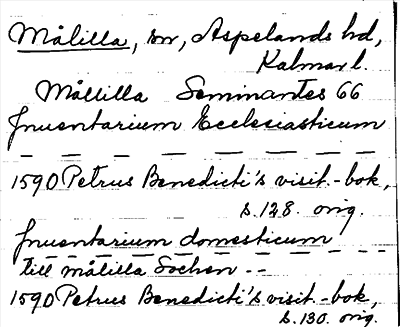 Målilla, sn, Aspelands hd,
Kalmar l.
Mållilla Seminantes 66
Inuentarium Ecclesiasticum
1590 Petrus Benedicti's visit.-bok,
s. 128. orig.
Inuentarium domesticum
till målilla Sochen --
1590 Petrus Benedicti's visit.-bok,
s. 130. orig.